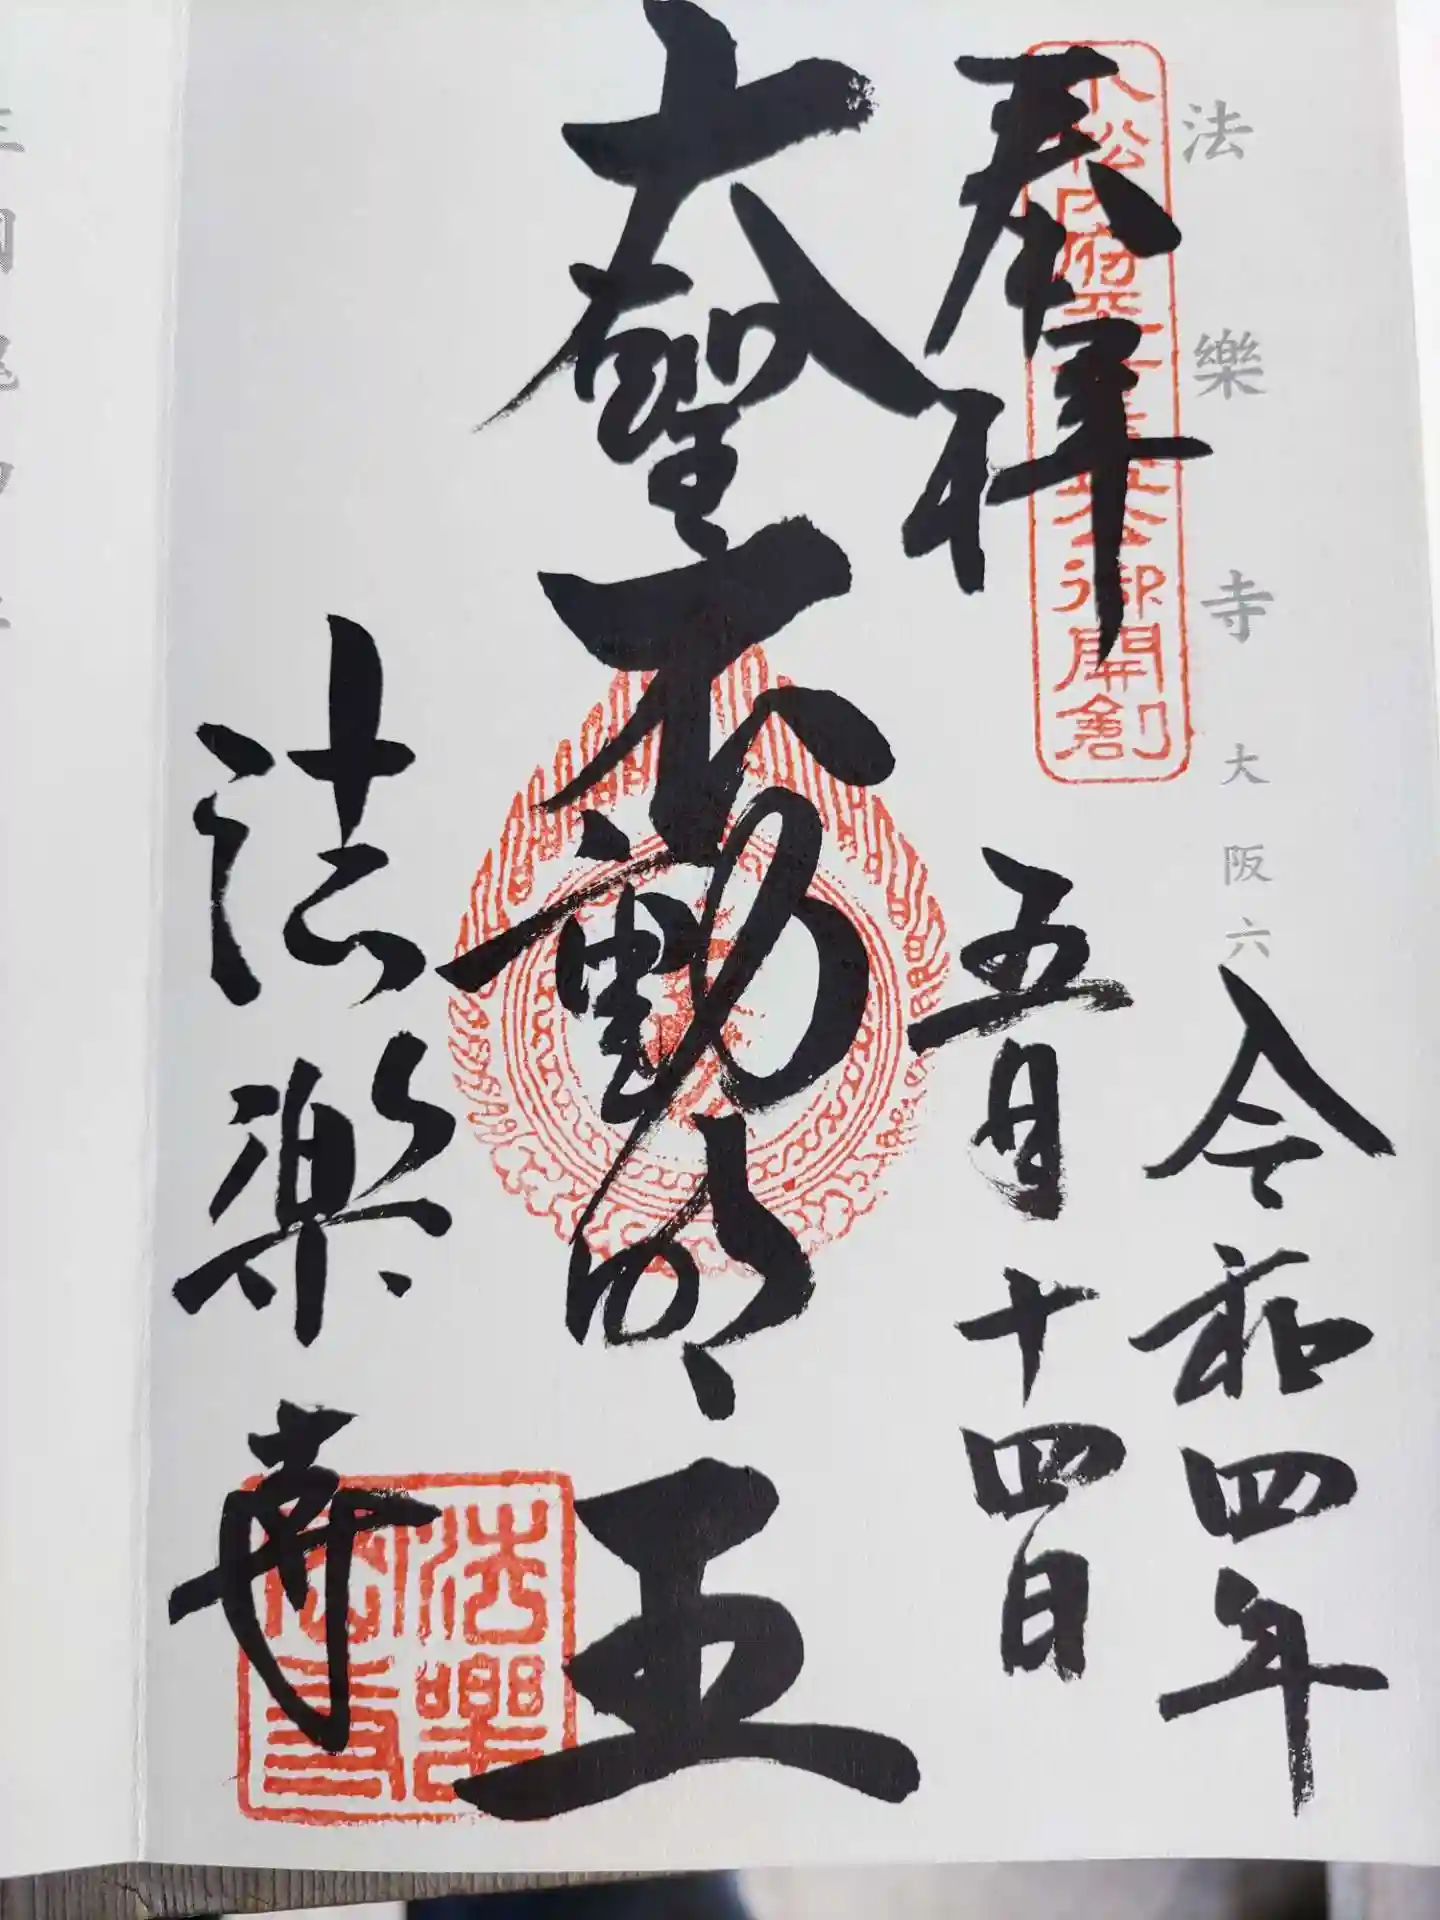 法樂寺 大阪六
小松内府平重盛公御開創
奉拝
令和四年
五月十四日
大聖不動明王
法楽寺
法樂